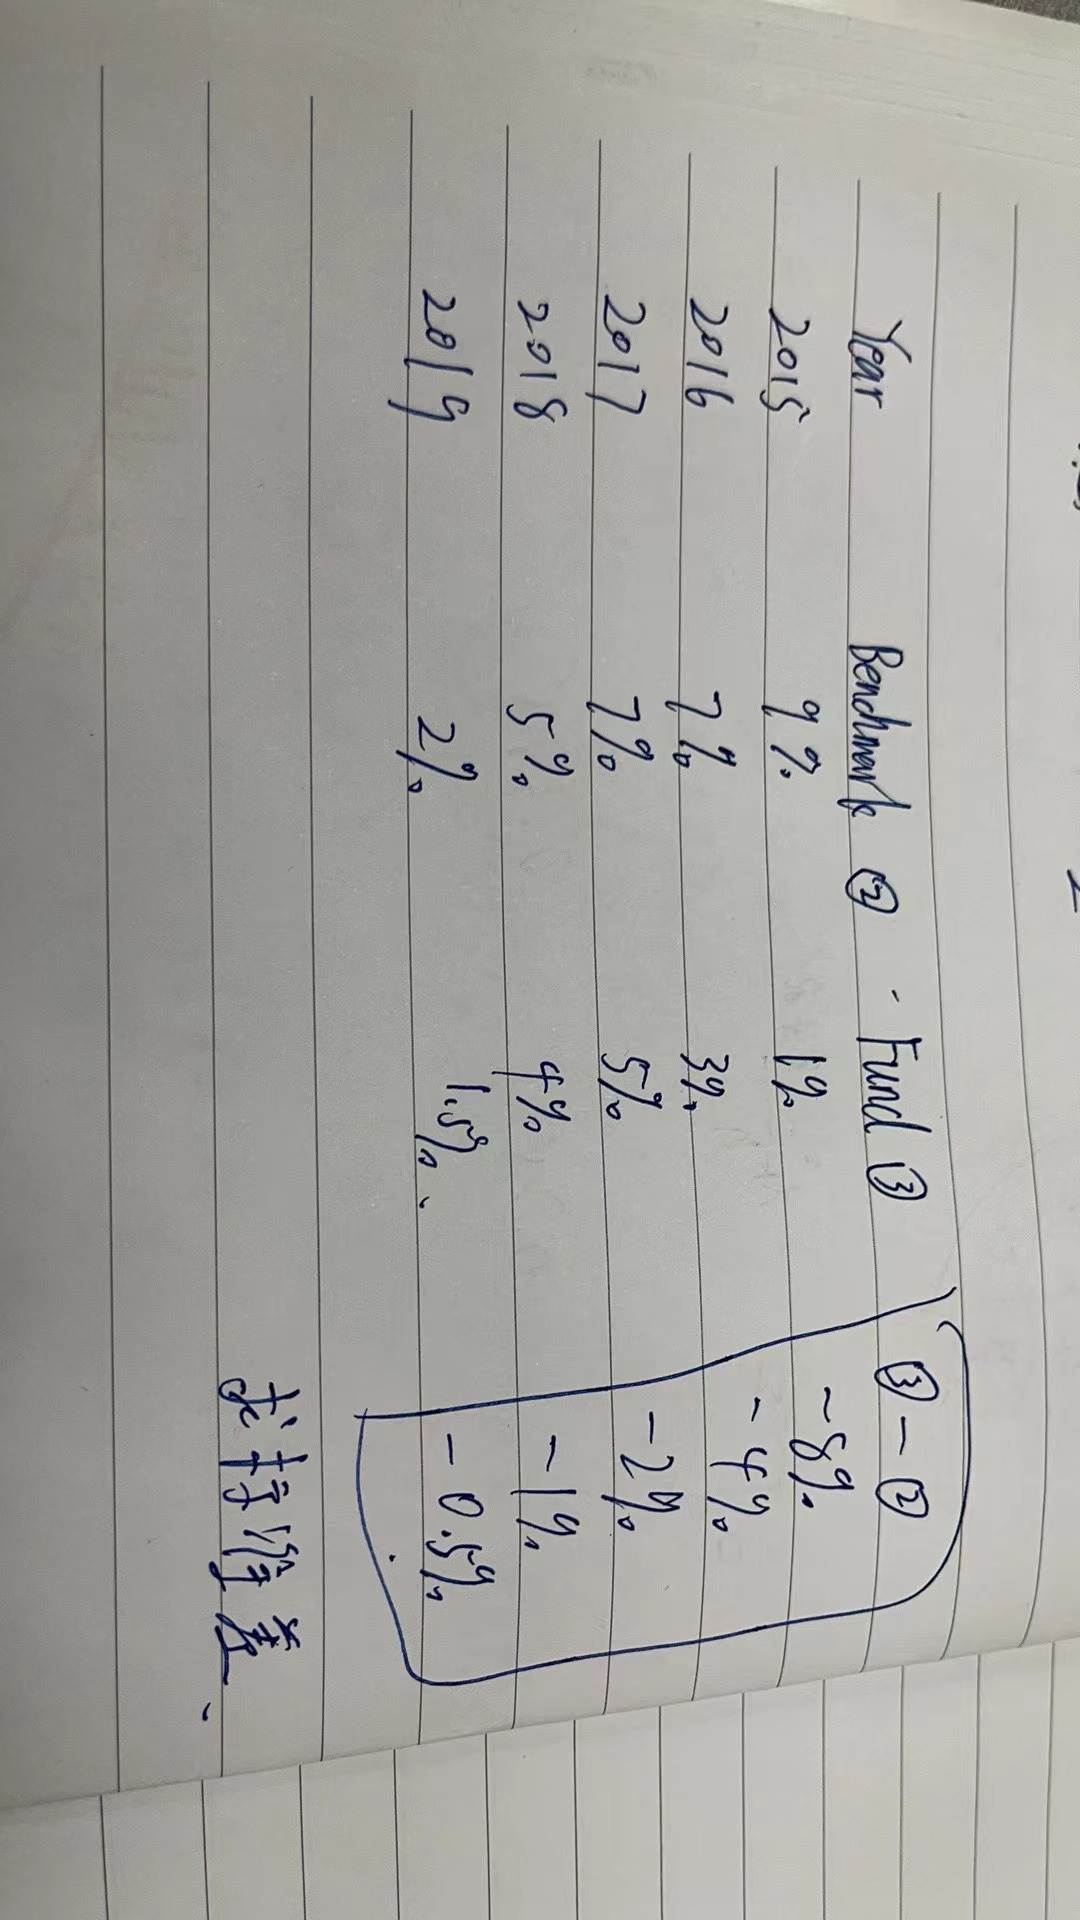 Year Benchmark ② - Fund ③ ③-②
2015 9% 1% -8%
2016 7% 3% -4%
2017 7% 5% -2%
2018 5% 4% -1%
2019 2% 1.5% -0.5%
求标准差